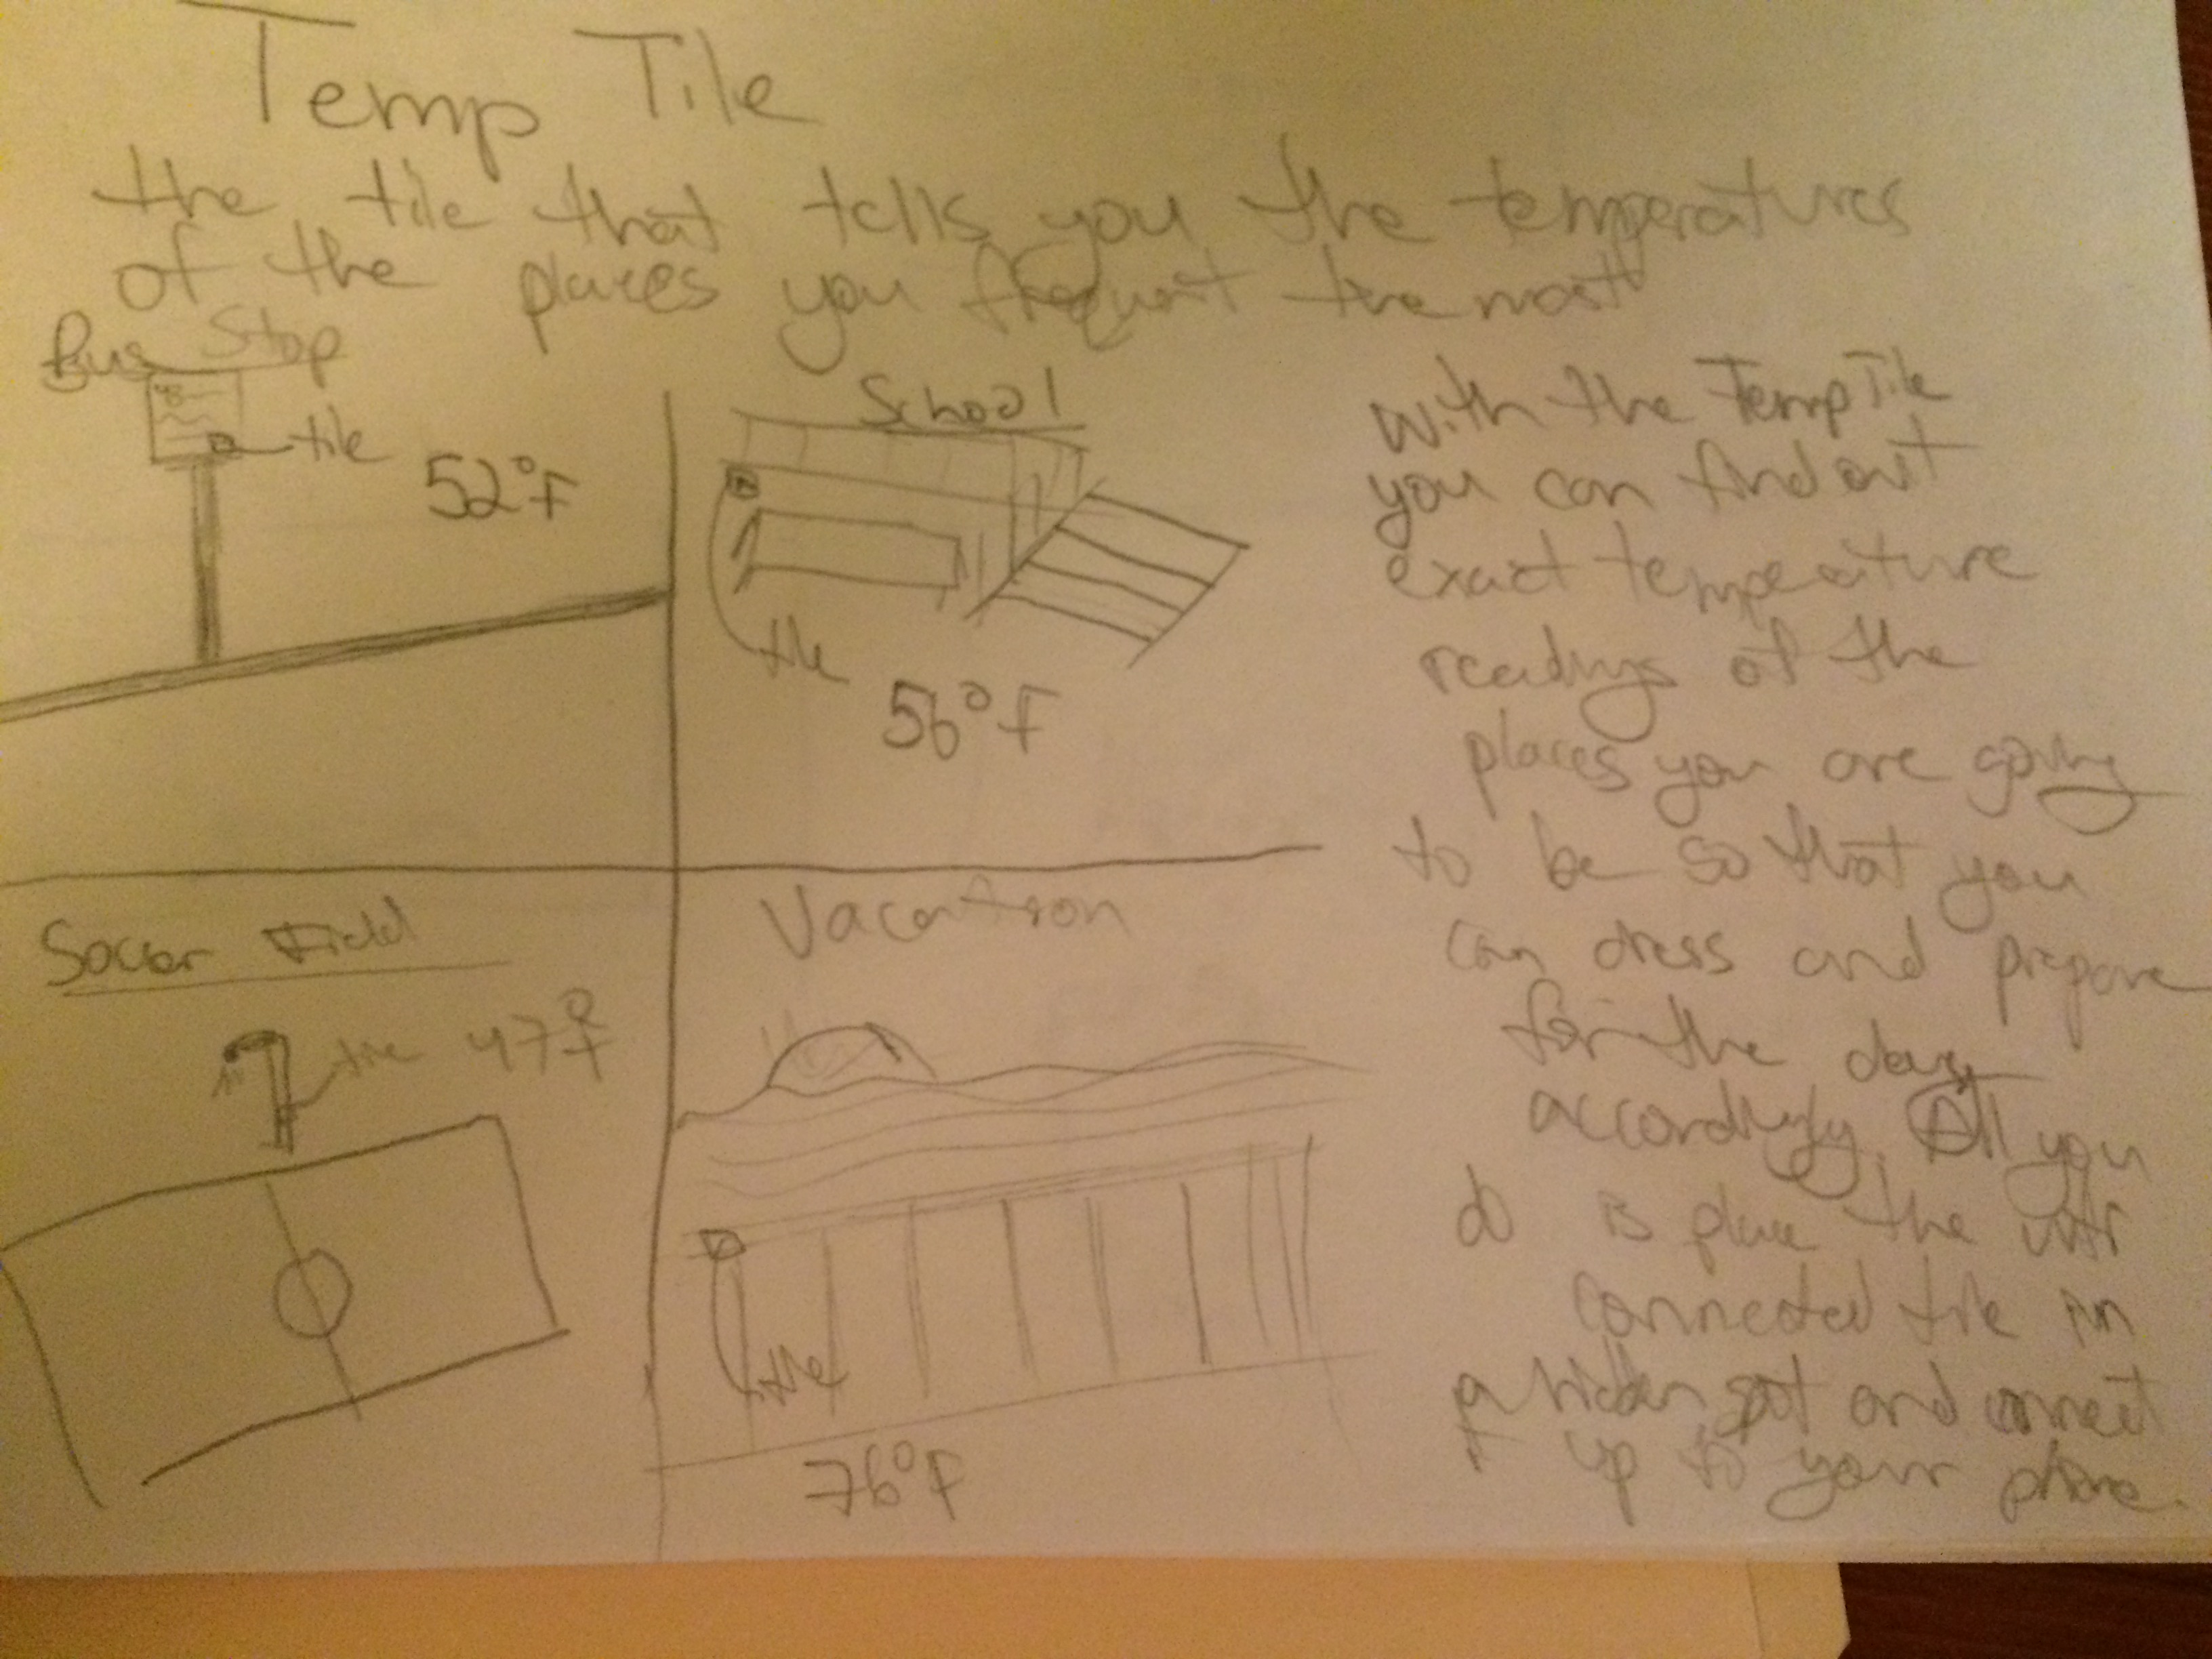 Temp Tile
the tile that tells you the temperatures
of the places you frequent the most
Bus Stop
tile
52°F
School
tile
56°F
Soccer Field
tile 47°F
Vacation
tile
76°F
With the Temp Tile
you can find out
exact temperature
readings of the
places you are going
to be so that you
can dress and prepare
for the day
accordingly. All you
do is place the wifi
connected tile in
a hidden spot and connect
it up to your phone.